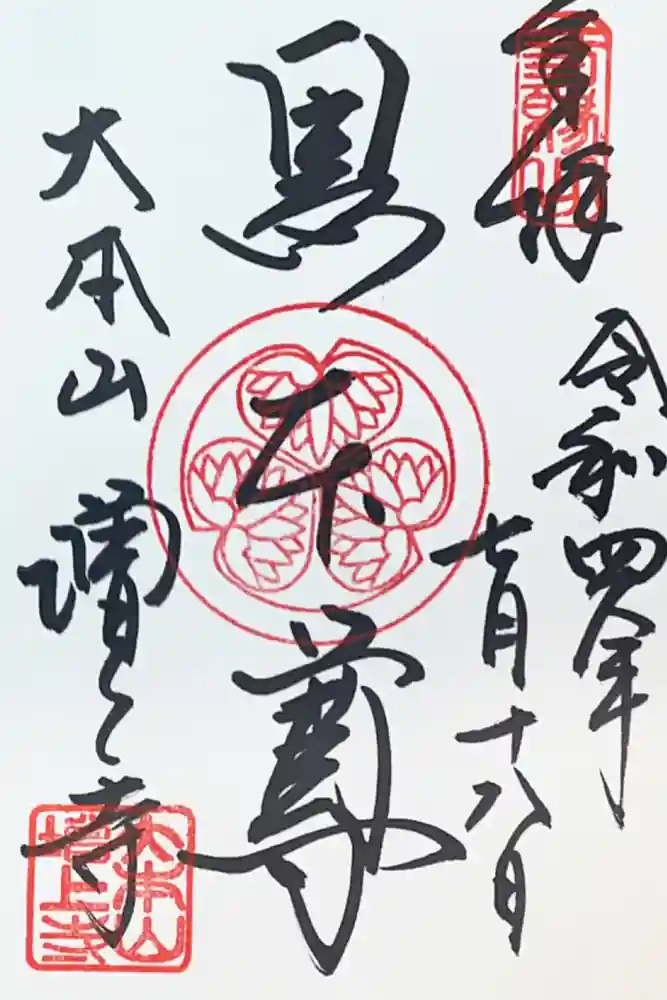 奉拝
令和四年
七月十八日
黒本尊
大本山 増上寺
大本山
増上寺